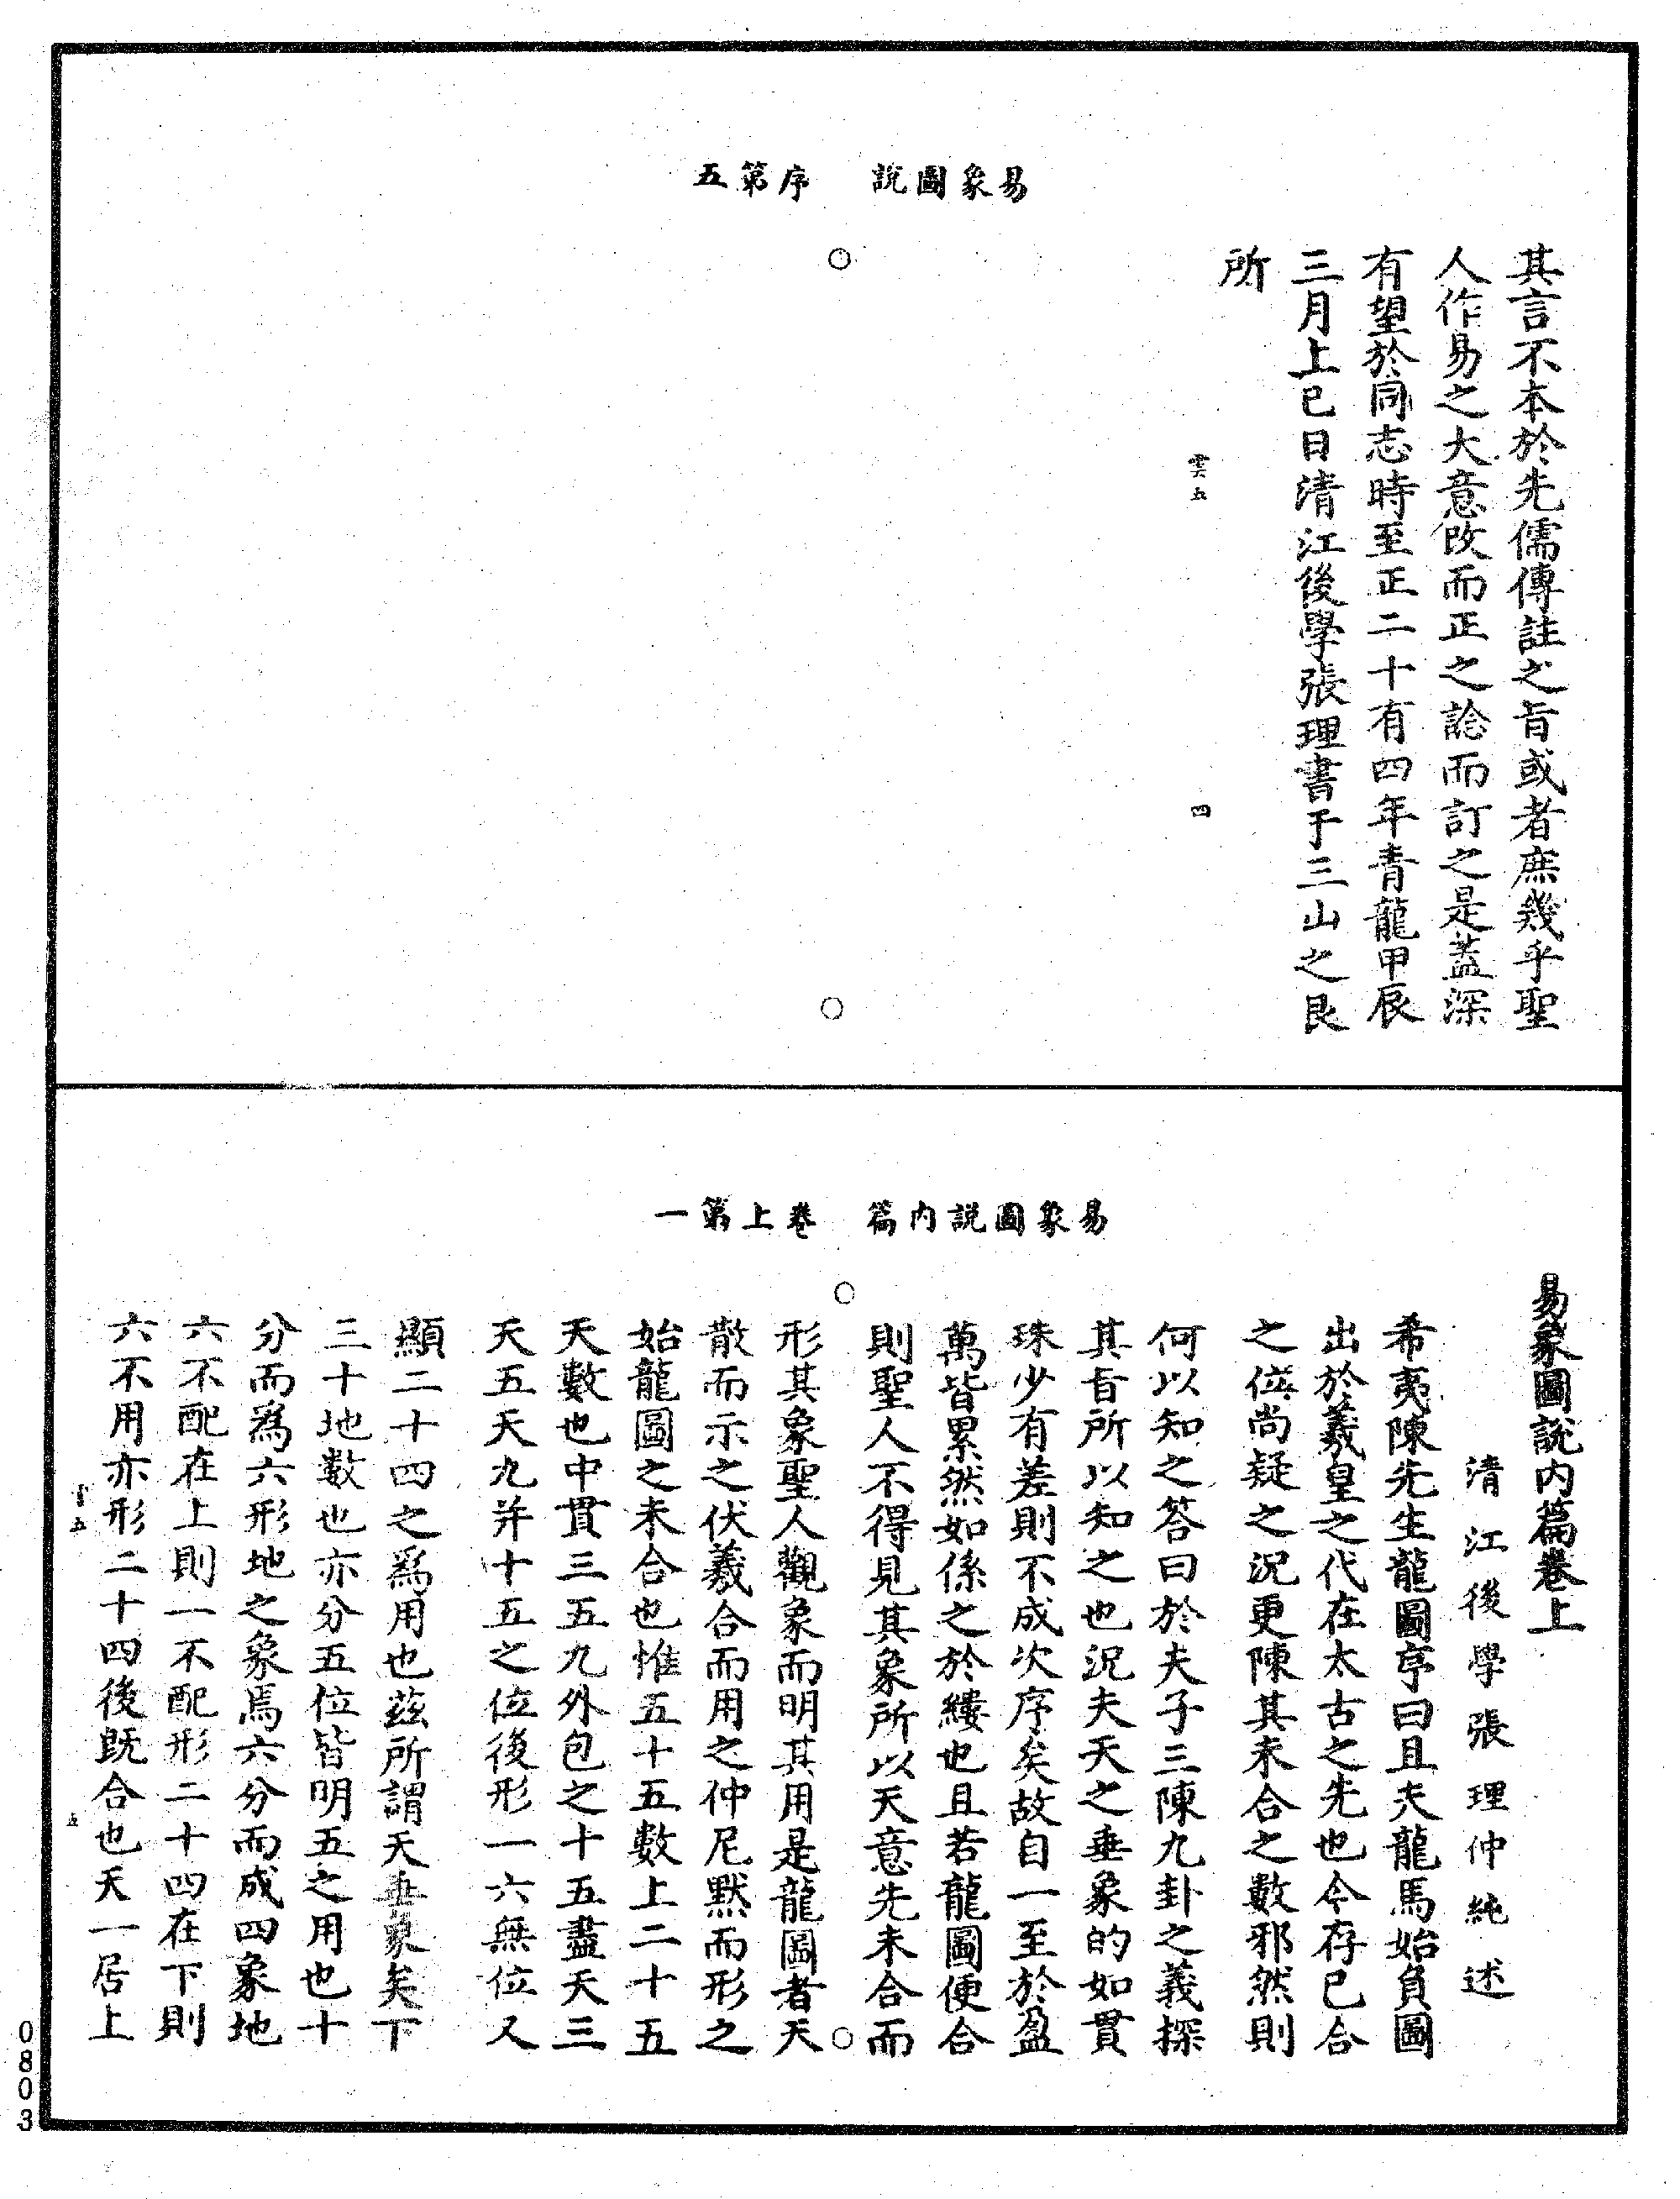 易象圖說　序第五
其言不本於先儒傳註之旨或者庶幾乎聖
人作易之大意改而正之諗而訂之是蓋深
有望於同志時至正二十有四年青龍甲辰
三月上巳日清江後學張理書于三山之艮
所
雲五
四
易象圖說內篇　卷上第一
易象圖說內篇卷上
清江後學張理仲純述
希夷陳先生龍圖序曰且夫龍馬始負圖
出於羲皇之代在太古之先也今存已合
之位尚疑之況更陳其未合之數邪然則
何以知之答曰於夫子三陳九卦之義探
其旨所以知之也況夫天之垂象的如貫
珠少有差則不成次序矣故自一至於盈
萬皆累然如係之於縷也且若龍圖便合
則聖人不得見其象所以天意先未合而
形其象聖人觀象而明其用是龍圖者天
散而示之伏羲合而用之仲尼默而形之
始龍圖之未合也惟五十五數上二十五
天數也中貫三五九外包之十五盡天三
天五天九并十五之位後形一六無位又
顯二十四之爲用也茲所謂天垂象矣下
三十地數也亦分五位皆明五之用也十
分而爲六形地之象焉六分而成四象地
六不配在上則一不配形二十四在下則
六不用亦形二十四後既合也天一居上
雲五
五
0803